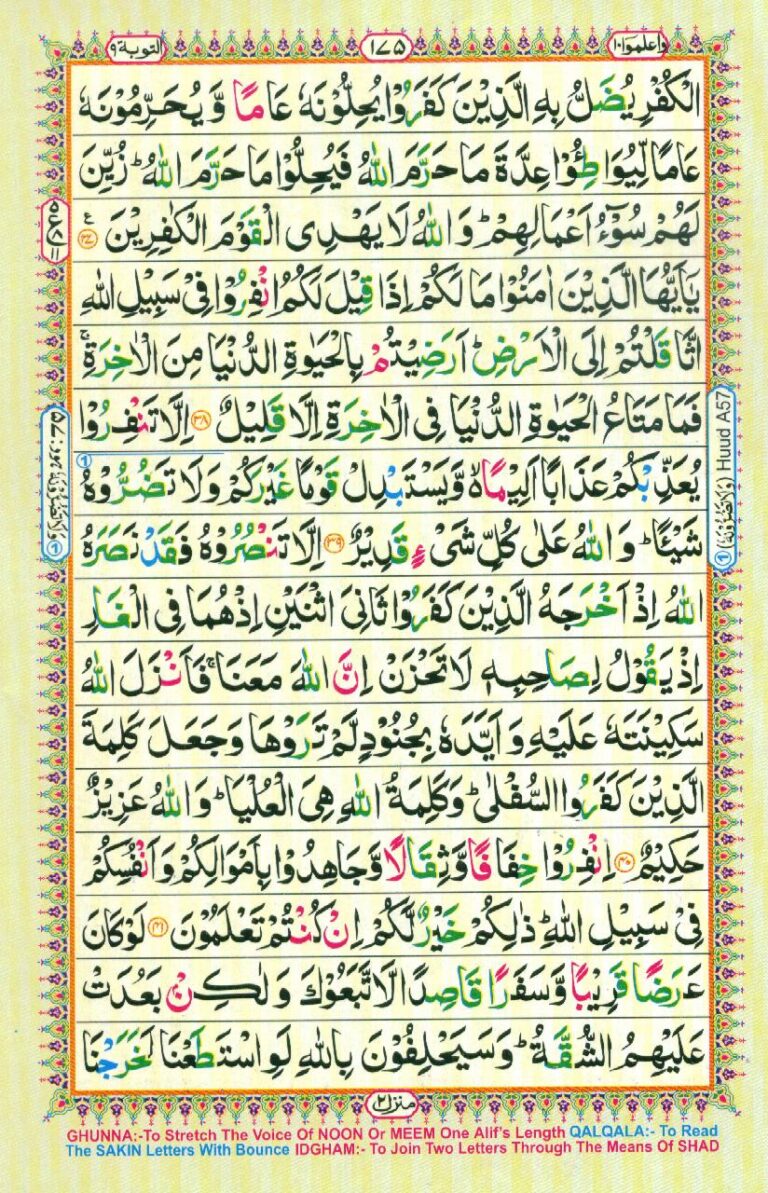 واعلموا ۱۰
۱۷۵
التوبة ۹
الْكُفْرِ يُضَلُّ بِهِ الَّذِيْنَ كَفَرُوْا يُحِلُّوْنَهٗ عَامًا وَّيُحَرِّمُوْنَهٗ
عَامًا لِّيُوَاطِـُٔوْا عِدَّةَ مَا حَرَّمَ اللّٰهُ فَيُحِلُّوْا مَا حَرَّمَ اللّٰهُ ؕ زُيِّنَ
لَهُمْ سُوْٓءُ اَعْمَالِهِمْ ؕ وَاللّٰهُ لَا يَهْدِى الْقَوْمَ الْكٰفِرِيْنَ ۳۷
يٰۤاَيُّهَا الَّذِيْنَ اٰمَنُوْا مَا لَكُمْ اِذَا قِيْلَ لَكُمُ انْفِرُوْا فِىْ سَبِيْلِ اللّٰهِ
اثَّاقَلْتُمْ اِلَى الْاَرْضِ ؕ اَرَضِيْتُمْ بِالْحَيٰوةِ الدُّنْيَا مِنَ الْاٰخِرَةِ ۚ
فَمَا مَتَاعُ الْحَيٰوةِ الدُّنْيَا فِى الْاٰخِرَةِ اِلَّا قَلِيْلٌ ۳۸ اِلَّا تَنْفِرُوْا
يُعَذِّبْكُمْ عَذَابًا اَلِيْمًا ۙ وَّيَسْتَبْدِلْ قَوْمًا غَيْرَكُمْ وَلَا تَضُرُّوْهُ
شَيْـًٔا ؕ وَاللّٰهُ عَلٰى كُلِّ شَىْءٍ قَدِيْرٌ ۳۹ اِلَّا تَنْصُرُوْهُ فَقَدْ نَصَرَهُ
اللّٰهُ اِذْ اَخْرَجَهُ الَّذِيْنَ كَفَرُوْا ثَانِىَ اثْنَيْنِ اِذْ هُمَا فِى الْغَارِ
اِذْ يَقُوْلُ لِصَاحِبِهٖ لَا تَحْزَنْ اِنَّ اللّٰهَ مَعَنَا ۚ فَاَنْزَلَ اللّٰهُ
سَكِيْنَتَهٗ عَلَيْهِ وَاَيَّدَهٗ بِجُنُوْدٍ لَّمْ تَرَوْهَا وَجَعَلَ كَلِمَةَ
الَّذِيْنَ كَفَرُوا السُّفْلٰى ؕ وَكَلِمَةُ اللّٰهِ هِىَ الْعُلْيَا ؕ وَاللّٰهُ عَزِيْزٌ
حَكِيْمٌ ۴۰ اِنْفِرُوْا خِفَافًا وَّثِقَالًا وَّجَاهِدُوْا بِاَمْوَالِكُمْ وَاَنْفُسِكُمْ
فِىْ سَبِيْلِ اللّٰهِ ؕ ذٰلِكُمْ خَيْرٌ لَّكُمْ اِنْ كُنْتُمْ تَعْلَمُوْنَ ۴۱ لَوْ كَانَ
عَرَضًا قَرِيْبًا وَّسَفَرًا قَاصِدًا لَّاتَّبَعُوْكَ وَلٰكِنْۢ بَعُدَتْ
عَلَيْهِمُ الشُّقَّةُ ؕ وَسَيَحْلِفُوْنَ بِاللّٰهِ لَوِ اسْتَطَعْنَا لَخَرَجْنَا
منزل ۲
Huud A57
GHUNNA:-To Stretch The Voice Of NOON Or MEEM One Alif's Length QALQALA:- To Read
The SAKIN Letters With Bounce IDGHAM:- To Join Two Letters Through The Means Of SHAD